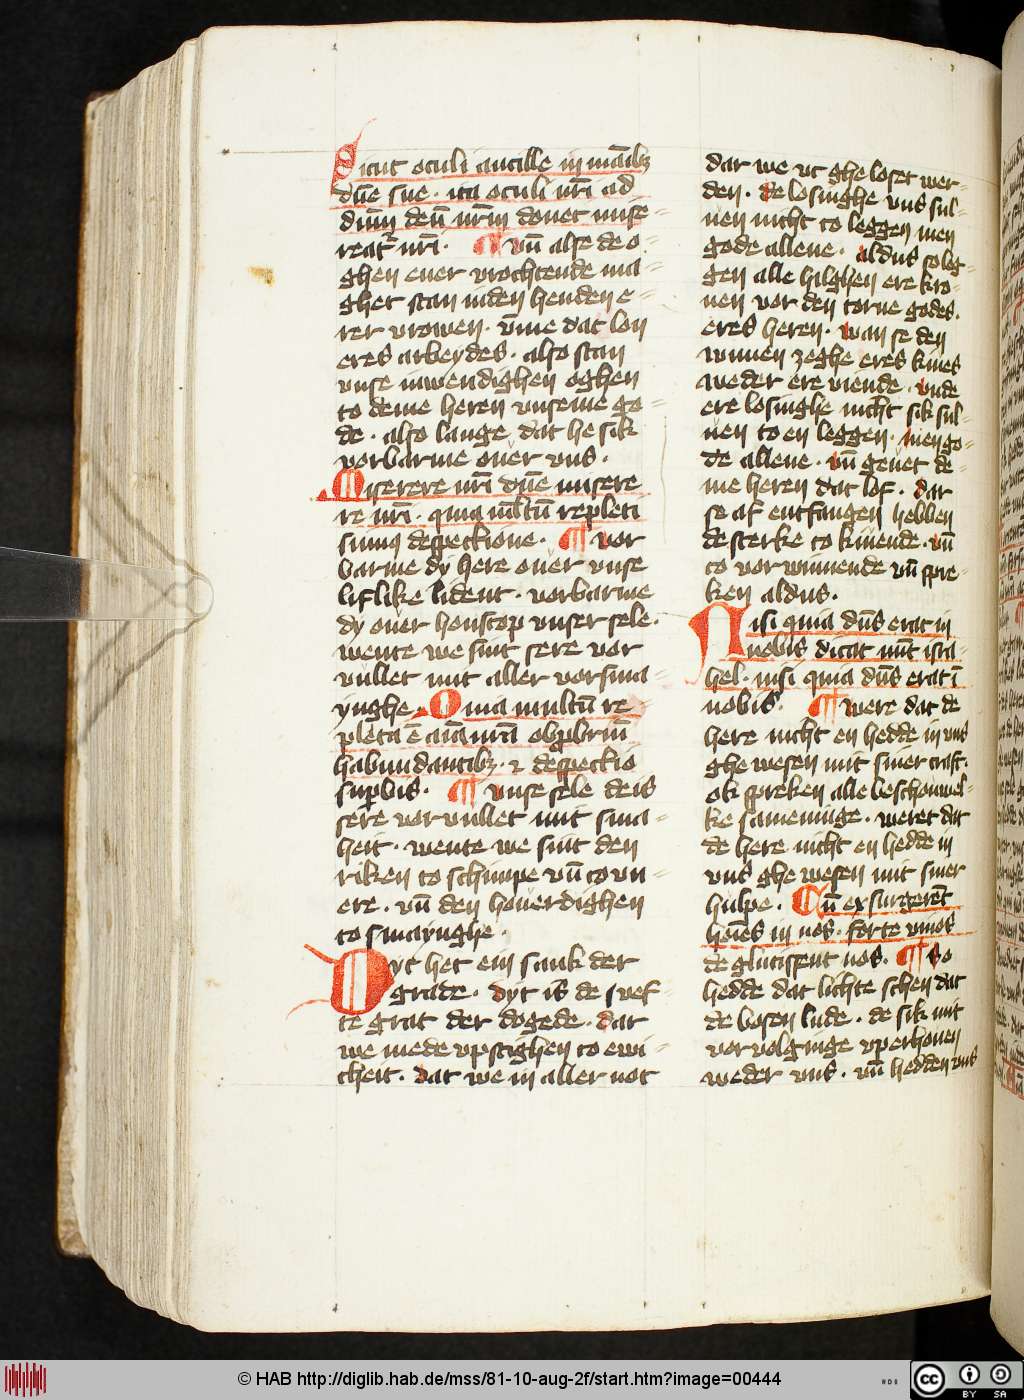 Sicut oculi ancille in manibꝫ
dn̄e sue · ita oculi nr̄i ad
dn̄m deū nr̄m donec mise
reatᷣ nr̄i · ¶ vn̄ alse de o-
ghen ener vrochtende ma-
ghet stan in den henden e-
rer vrowen · v̄me dat lon
eres arbeydes · also stan
vnse inwendighen oghen
to deme heren vnseme go-
de · also lange dat he sik
vorbarme ouer vns ·
Miserere nr̄i dn̄e misere
re nr̄i · quia ml̄tū repleti
sumꝯ despectione · ¶ vor
barme dy here ouer vnse
liflike lident · vorbarme
dy ouer honscop vnser sele ·
wente we sint sere vor
vullet mit aller vorsma-
ynghe · Quia multū re-
pleta ē aīa nr̄a obprobriū
habundantibꝫ · ⁊ despectio
suꝑbis · ¶ vnse sele de is
sere vorvullet mit sma-
heit · wente we sint den
riken to schimpe vn̄ to vn-
ere · vn̄ den houerdighen
to smaynghe ·
Dyt het ein sank der
grade · dyt is de ses-
te grat der dogede · dar
we mede vpstighen to ewi-
cheit · dat we in aller not
dar we vt ghe loset wer-
den · de losinghe vns sul-
uen nicht to leggen men
gode allene · aldus so leg-
gen alle hilghen ere kro-
nen vor den torne godes ·
eres heren · wan se den
winnen zeghe eres kiues
weder ere viende · vnde
ere losinghe nicht sik sul-
uen to en leggen · men go-
de allene · vn̄ geuet de-
me heren dat lof · dar
se af entfangen hebben
de sterke to kiuende · vn̄
to vorwinnende vn̄ spre-
ken aldus ·
Nisi quia dn̄s erat in
nobis dicat nūc isra-
hel · nisi quia dn̄s erat ī
nobis · ¶ were dat de
here nicht en hedde in vns
ghe wesen mit siner craft ·
ok spreken alle beschouwel-
ke sameninge · weret dat
de here nicht en hedde in
vns ghe wesen mit siner
hulpe · Cū exsurgerēt
hoīes in nos · forte viuos
de glutissent nos · ¶ So
hedde dat lichte schen dat
de bosen lude · de sik mit
vorvolginge vperhouen
weder vns · vn̄ hedden vns
© HAB http://diglib.hab.de/mss/81-10-aug-2f/start.htm?image=00444
cc BY SA